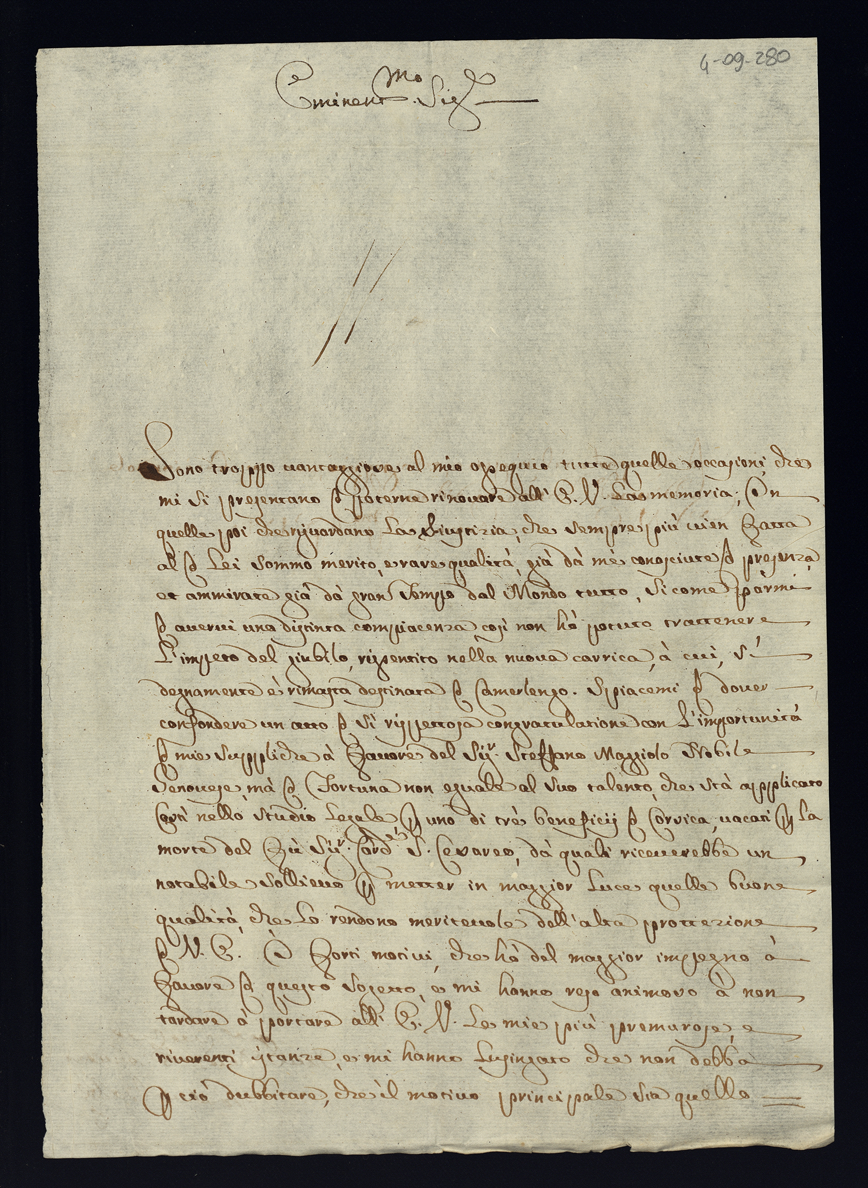 4-09-280
Eminent.mo Sig.re
Sono troppo vantaggiose al mio ossequio tutte quelle occasioni, che
mi si presentano di poterne rinovare all'E. V. La memoria; e in
quelle poi che riguardano La Giustizia, che sempre più vien Fatta
al di Lei Sommo merito, e rare qualità, già dà mè conosciute di presenza,
et ammirate già dà gran Tempo dal Mondo tutto, Si come parmi
d'avervi una distinta compiacenza, così non hò potuto trattenere
L'impeto del giubilo, risentito nella nuova carrica, à cui, Sì
degnamente è rimasta destinata di Camerlengo. Spiacemi di dover
confondere un atto di Sì rispettosa congratulatione con L'importunità
di mie Suppliche à Favore del Sig.r Steffano Maggiolo Nobile
Genovese, mà di Fortuna non eguale al Suo talento, che stà applicato
costì nello Studio Legale per uno di trè beneficij di Corsica, vacati per La
morte del Fù Sig.r Card.e S. Cesareo, dà quali riceverebbe un
notabile Sollievo per metter in maggior Luce quelle buone
qualità, che Lo rendono meritevole dell'alta prottezione
di V. E. I Forti motivi, che hò del maggior impegno à
Favore di questo Sogetto, e mi hanno reso animoso à non
tardare à portare all'E. V. Le mie più premurose, e
riverenti istanze, e mi hanno Lusingato che non debba
perciò dubbitare, che il motivo principale Sia quello